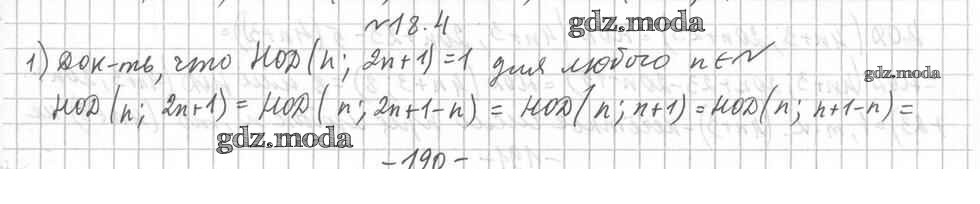 №18.4
gdz.moda
1) Док-ть, что НОД(n; 2n+1)=1 для любого n∈N
gdz.moda
НОД(n; 2n+1) = НОД(n; 2n+1-n) = НОД(n; n+1) = НОД(n; n+1-n) =
gdz.moda
-190-